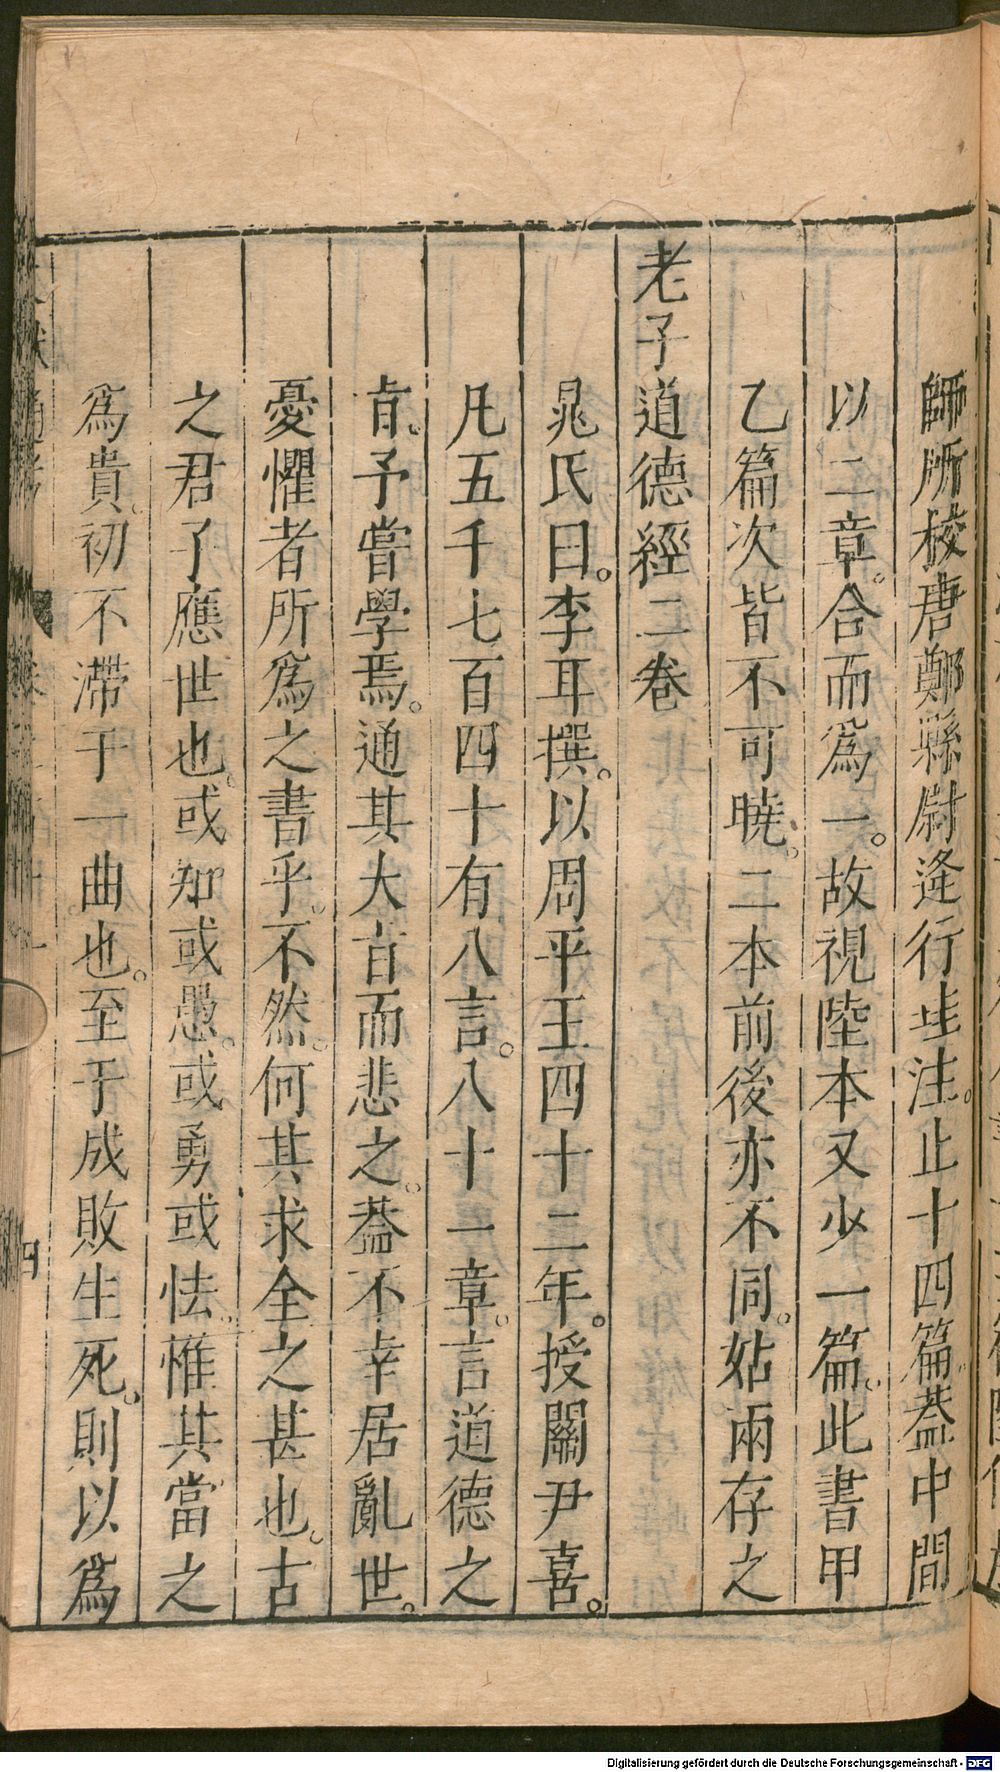 師所校唐鄭縣尉逄行珪注。止十四篇。葢中間
以二章。合而爲一。故視陸本又少一篇。此書甲
乙篇次。皆不可曉。二本前後亦不同。姑兩存之
老子道德經二卷
晁氏曰。李耳撰。以周平王四十二年。授關尹喜。
凡五千七百四十有八言。八十一章。言道德之
㫖。予嘗學焉。通其大㫖而悲之。葢不幸居亂世。
憂懼者所爲之書乎。不然。何其求全之甚也。古
之君子應世也。或知或愚。或勇或怯。惟其當之
爲貴。初不滯于一曲也。至于成敗生死。則以爲
四
Digitalisierung gefördert durch die Deutsche Forschungsgemeinschaft - DFG